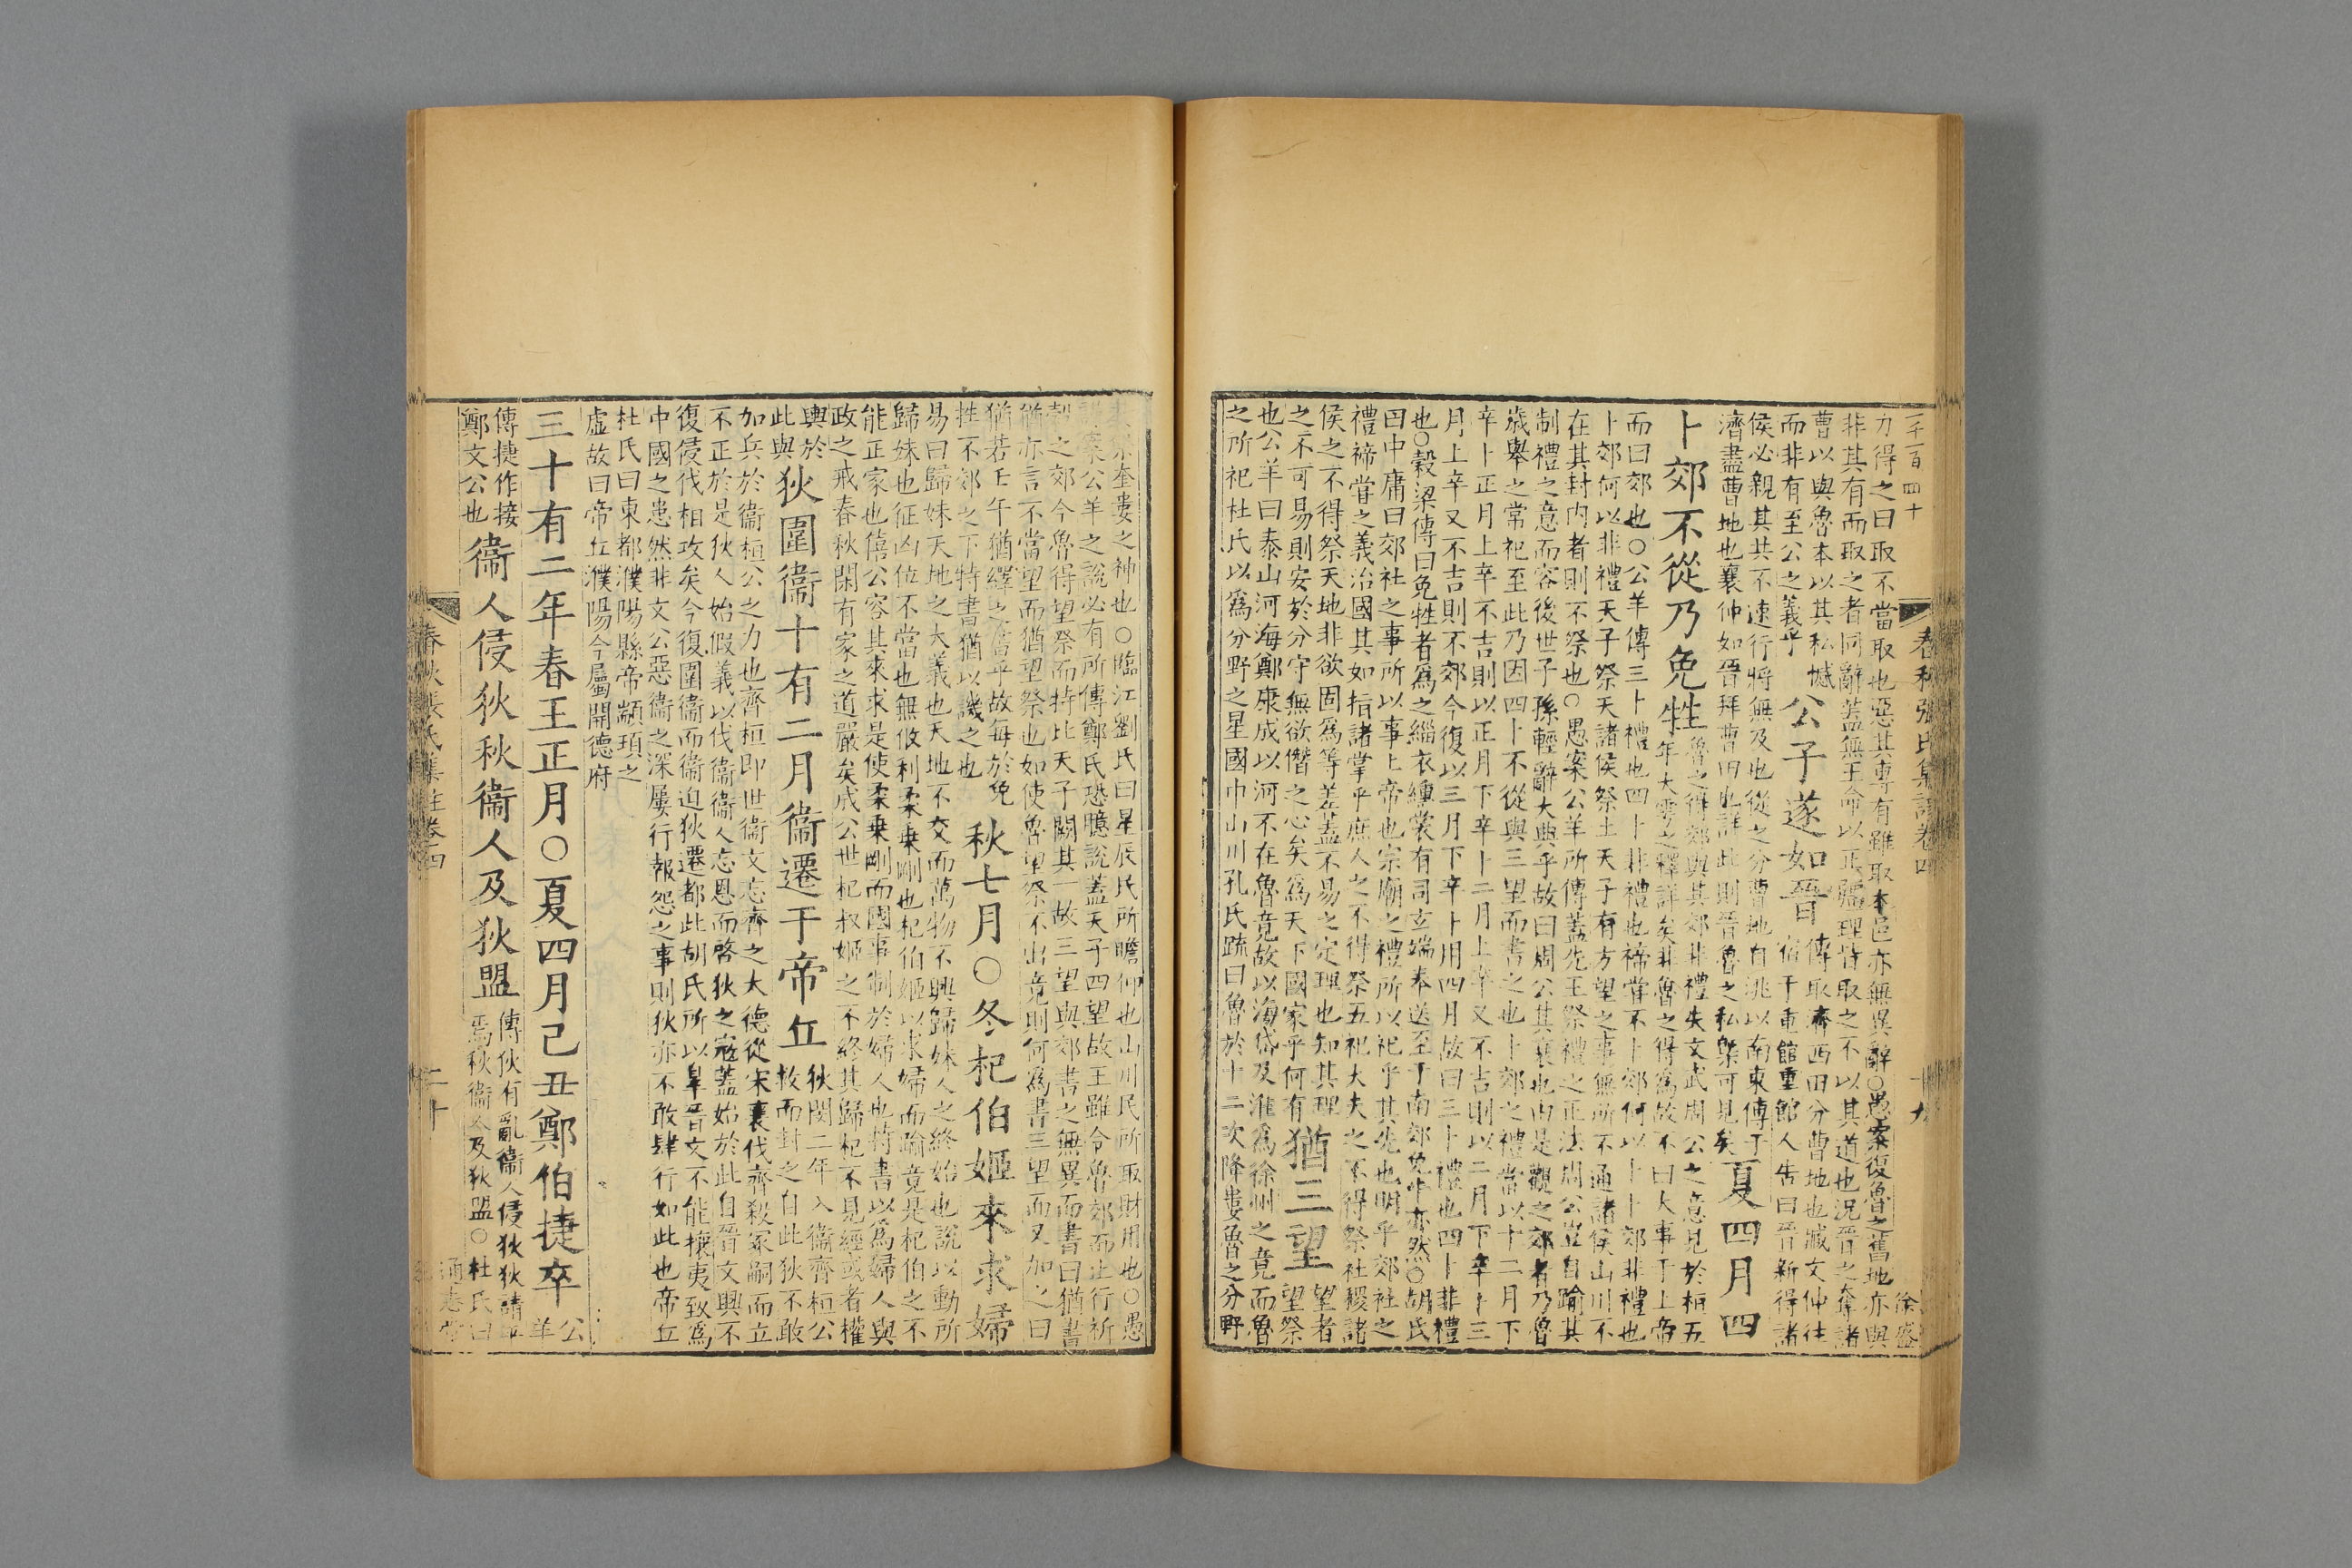 一千一百四十
春秋張氏集註卷四
十九
徐盛
力得之曰取不當取也惡其專有雖取本邑亦無異辭○愚案復魯之舊地亦與
非其有而取之者同辭蓋無王命以正疆理皆取之不以其道也況晉之奪諸
曹以與魯本以其私憾
而非有至公之義乎
公子遂如晉
傳取濟西田分曹地也臧文仲往
宿于重館重館人告曰晉新得諸
侯必親其共不速行將無及也從之分曹地自洮以南東傅于
濟盡曹地也襄仲如晉拜曹田也詳此則晉魯之私槩可見矣
夏四月四
卜郊不從乃免牲
魯之得郊與其郊非禮失文武周公之意見於桓五
年大雩之釋詳矣非魯之得爲故不曰大事于上帝
而曰郊也○公羊傳三卜禮也四卜非禮也禘嘗不卜郊何以卜卜郊非禮也
卜郊何以非禮天子祭天諸侯祭土天子有方望之事無所不通諸侯山川不
在其封内者則不祭也○愚案公羊所傳蓋先王祭禮之正法周公豈自踰其
制禮之意而容後世子孫輕辭大典乎故曰周公其衰也由是觀之郊者乃魯
歲舉之常祀至此乃因四卜不從與三望而書之也卜郊之禮當以十二月下
辛卜正月上辛不吉則以正月下辛卜二月上辛又不吉則以二月下辛卜三
月上辛又不吉則不郊今復以三月下辛卜用四月故曰三卜禮也四卜非禮
也○穀梁傳曰免牲者爲之緇衣纁裳有司玄端奉送至于南郊免牛亦然○胡氏
曰中庸曰郊社之事所以事上帝也宗廟之禮所以祀乎其先也明乎郊社之
禮禘嘗之義治國其如指諸掌乎庶人之不得祭五祀大夫之不得祭社稷諸
侯之不得祭天地非欲固爲等差蓋不易之定理也知其理
之不可易則安於分守無欲僭之心矣爲天下國家乎何有
猶三望
望者
望祭
也公羊曰泰山河海鄭康成以河不在魯竟故以海岱及淮爲徐州之竟而魯
之所祀杜氏以爲分野之星國中山川孔氏疏曰魯於十二次降婁魯之分野
奎婁之神也○臨江劉氏曰星辰民所瞻仰也山川民所取財用也○愚
案公羊之說必有所傳鄭氏恐臆說蓋天子四望故王雖令魯郊而止行祈
穀之郊今魯得望祭而特比天子闕其一故三望與郊書之無異而書曰猶書
猶亦言不當望而猶望祭也如使魯望祭不出竟則何爲書三望而又加之曰
猶若壬午猶繹之書乎故每於免
牲不郊之下特書猶以譏之也
秋七月○冬杞伯姬來求婦
易曰歸妹天地之大義也天地不交而萬物不興歸妹人之終始也說以動所
歸妹也征凶位不當也無攸利柔乗剛也杞伯姬以求婦而踰竟是杞伯之不
能正家也僖公容其來求是使柔乗剛而國事制於婦人也特書以爲婦人與
政之戒春秋閑有家之道嚴矣成公世杞叔姬之不終其歸杞不見經或者權
輿於
此與
狄圍衞十有二月衞遷于帝丘
狄閔二年入衞齊桓公
救而封之自此狄不敢
加兵於衞桓公之力也齊桓即世衞文忘齊之大德從宋襄伐齊殺冢嗣而立
不正於是狄人始假義以伐衞衞人忘恩而啓狄之寇蓋始於此自晉文興不
復侵伐相攻矣今復圍衞而衞迫狄遷都此胡氏所以辠晉文不能攘夷致爲
中國之患然非文公惡衞之深屢行報怨之事則狄亦不敢肆行如此也帝丘
杜氏曰東都濮陽縣帝顓頊之
虛故曰帝丘濮陽今屬開德府
三十有二年春王正月○夏四月己丑鄭伯捷卒
公
羊
傳捷作接
鄭文公也
衞人侵狄秋衞人及狄盟
傳狄有亂衞人侵狄狄請平
焉秋衞人及狄盟○杜氏曰
春秋張氏集註卷四
二十
通志堂